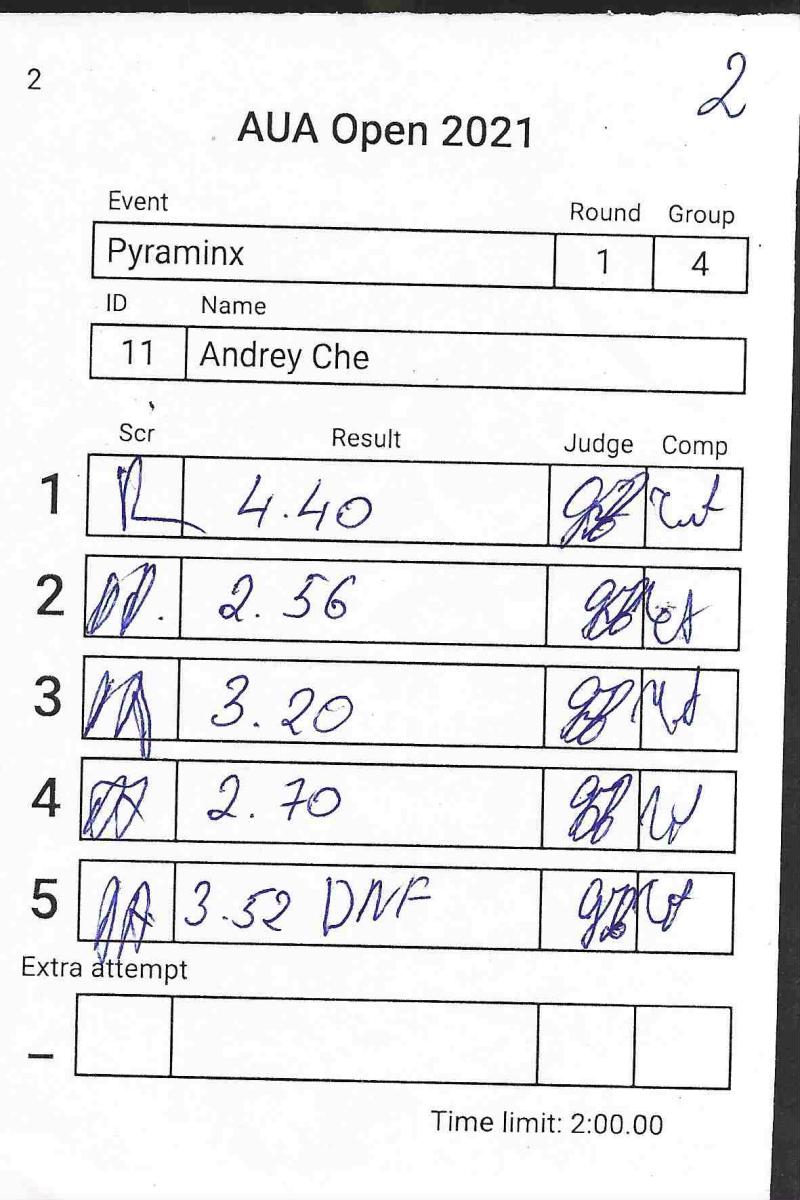 2
2
AUA Open 2021
Event Round Group
Pyraminx 1 4
ID Name
11 Andrey Che
Scr Result Judge Comp
1 4.40
2 2.56
3 3.20
4 2.70
5 3.52 DNF
Extra attempt
_
Time limit: 2:00.00